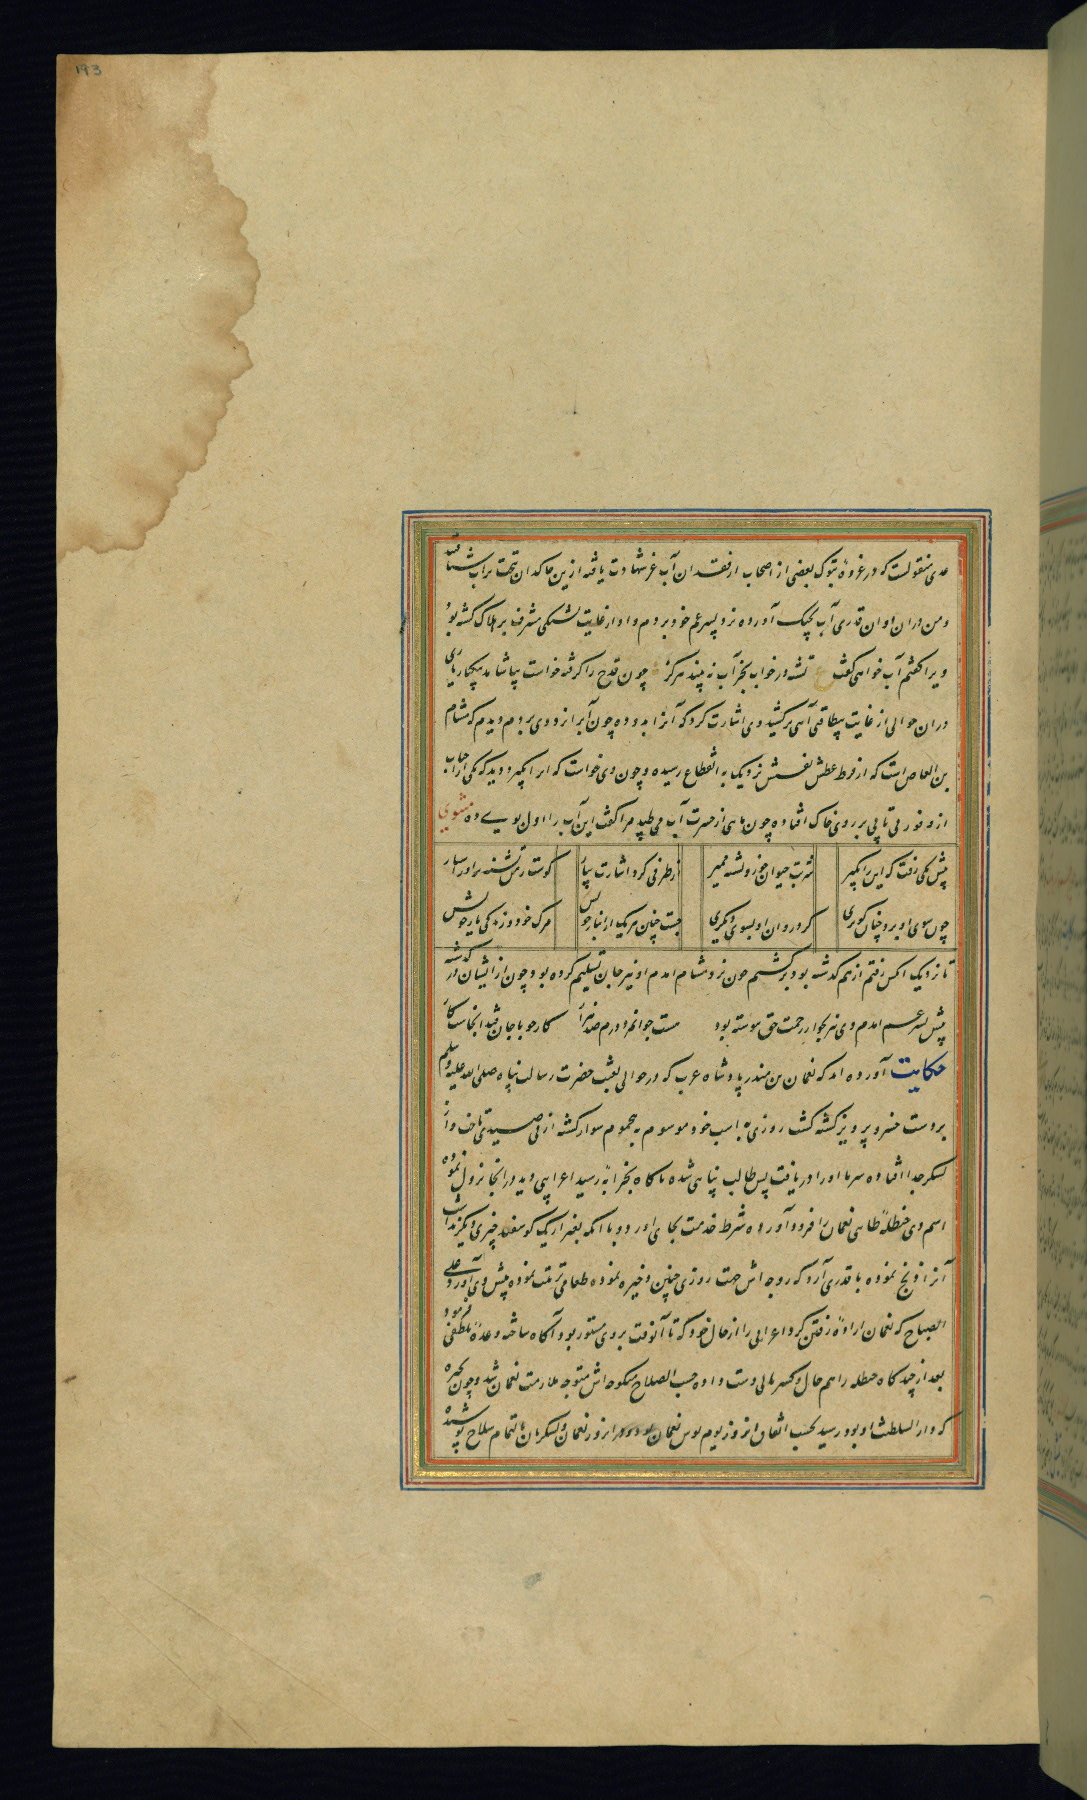 193
عدی منقولست که در غزوهٔ تبوک بعضی از اصحاب از فقدان آب غر شهادت یافته ازین خاکدان تحت تراب شتافتند
و من دران اوان قدری آب بچنگ آورده نزد پسر عم خود بردم و او از غایت تشنگی مشرف بر هلاک گشته بود
ویرا گفتم آب خواهی گفت ع تشنه در خواب بجز آب نه بیند هرگز چون قدح را گرفته خواست بیاشامد
دران حوالی از غایت بیطاقتی آهی برکشید وی اشارت کرد که آنرا بدو ده چون آبرا نزد وی بردم دیدم که هشام
بن العاص است که از فرط عطش نفسش نزدیک به انقطاع رسیده و چون وی خواست که آبرا بگیرد دید که یکی از اصحاب
از وفور بی تابی بر روی خاک افتاده چون ماهی از حسرت آب می طپد مرا گفت این آب را اول بوی ده مثنوی
پیش یکی رفت که این را بگیر شربت حیوان خور و تشنه ممیر از طرفی کرد اشارت بیار کوست ز من تشنه تر
چون سوی او برد چنان کوثری کرد روان او بسوی دیگری جست چنین هر یک از ایثار خویش مرگ خود و زندگی یار خویش
تا نزدیک آنکس رفتم از هم گذشته بود برگشتم چون نزد هشام آمدم او نیز جان تسلیم کرده بود چون از ایشان در گذشته
پیش پسر عم آمدم وی نیز بجوار رحمت حق پیوسته بود هست جوانمرد درم صد هزار کار چو با جان فتد آنجاست کار
حکایت آورده اند که نعمان بن منذر پادشاه عرب که در حوالی بعثت حضرت رسالت پناه صلی الله علیه وسلم
بر دست خسرو پرویز کشته گشت روزی به اسب خود موسوم به یحموم سوار گشته از پی صیدی تاخت و از
لشکر جدا افتاده سرما او را دریافت پس طالب پناهی شده ناگاه بخرابهٔ رسید اعرابی دید در انجا نزول نموده
اسم وی حنظلهٔ طائی نعمان را فرود آورده شرط خدمت بجای آورد و با آنکه بغیر از یک گوسفند چیزی دیگر نداشت
آنرا ذبح نموده با قدری آرد که زوجه اش جهت روزی چنین ذخیره نموده طعامی ترتیب نموده پیش وی آورد علی
الصباح که نعمان ارادهٔ رفتن کرد اعرابی را از حال خود که تا آنوقت بر وی مستور بود آگاه ساخته وعدهٔ تلطفی فرمود
بعد از چند گاه حنظله را هم حال و کسر مالی دست داده حسب الصلاح منکوحه اش متوجه ملازمت نعمان شد و چون بحیره
که دار السلطنت او بود رسید بحسب اتفاق آنروز یوم بوس نعمان بود و در آنروز نعمان و لشکریان با تمام سلاح پوشیده